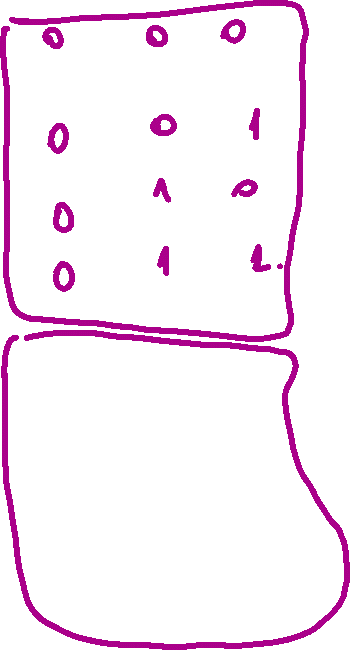 0 0 0
0 0 1
0 1 0
0 1 1